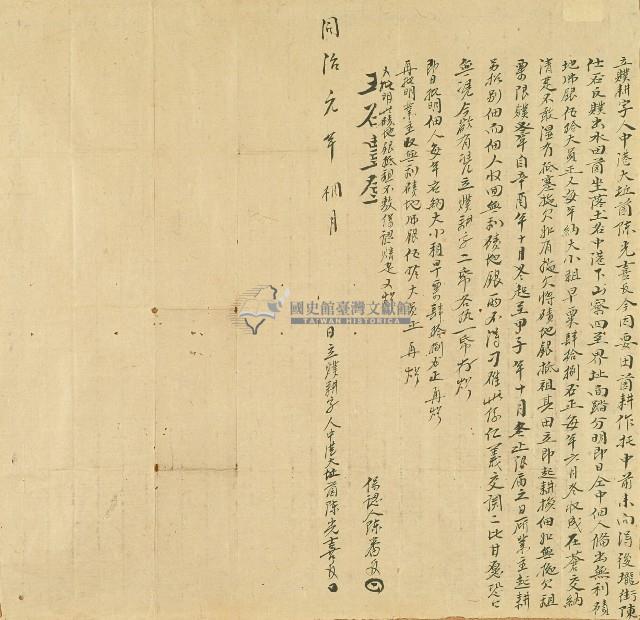 立贌耕字人中港大址莆陳光喜反今因要田莆耕作托中前來向得後壠街陳
仕石反贌出水田莆坐落土名中港下山寮四至界址面踏分明即日仝中佃人備出無利磧
地佛銀伍拾大員正又每年納大小租早粟肆拾捌石正每年六月冬收成在
清楚不敢濕有抵塞拖欠如有拖欠將磧地銀抵租其田立即起耕換佃如無拖欠租
粟限贌年自辛酉年十月冬起至甲子年十月冬止限滿之日所業主起耕
另招別佃而佃人收回無利磧地銀兩不得刁難此係仁義交關二比甘愿恐口
無凴今欲有凴立贌耕字二帋各執一帋存炤
即日批明佃人每年應納大小租早粟肆拾捌石正再炤
再批明業主收無利磧地佛銀伍拾大員正 再炤
又批明磧地銀抵租不敷保認清楚又炤
同治元年 月 日立贌耕字人中港大址莆陳光喜反
保認人陳喬反
國史館臺灣文獻館
TAIWAN HISTORICA